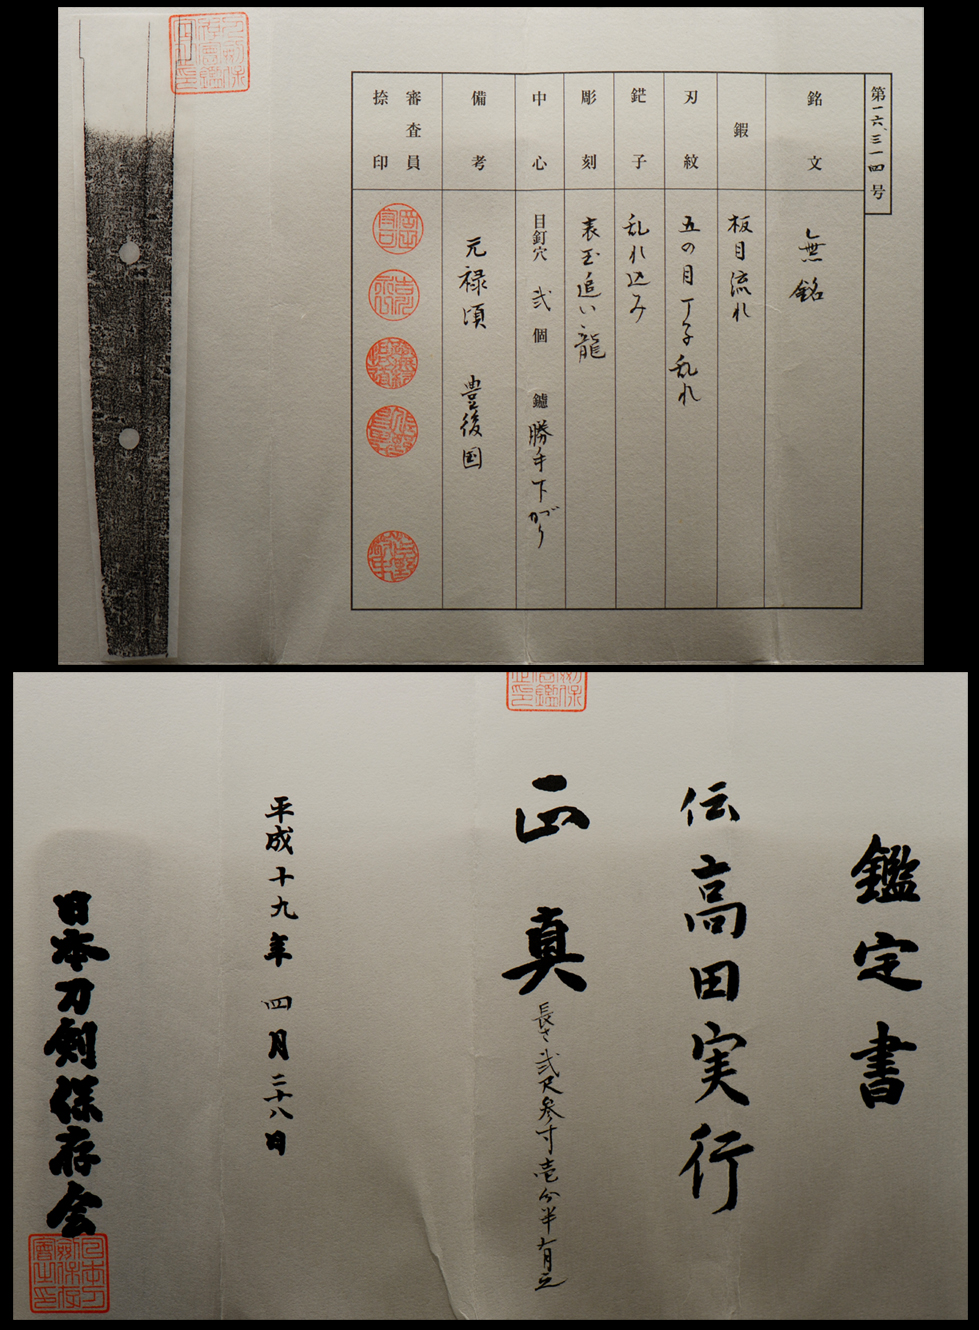 第一六、三一四号
銘文
無銘
鍜
板目流れ
刃紋
五の目丁子乱れ
鋩子
乱れ込み
彫刻
表玉追い龍
中心
目釘穴 弐 個 鑢 勝手下がり
備考
元禄頃 豊後国
審査員
捺印
鑑定書
伝高田実行
正真
長さ弐尺参寸壱分半有之
平成十九年 四月二十八日
日本刀剣保存会